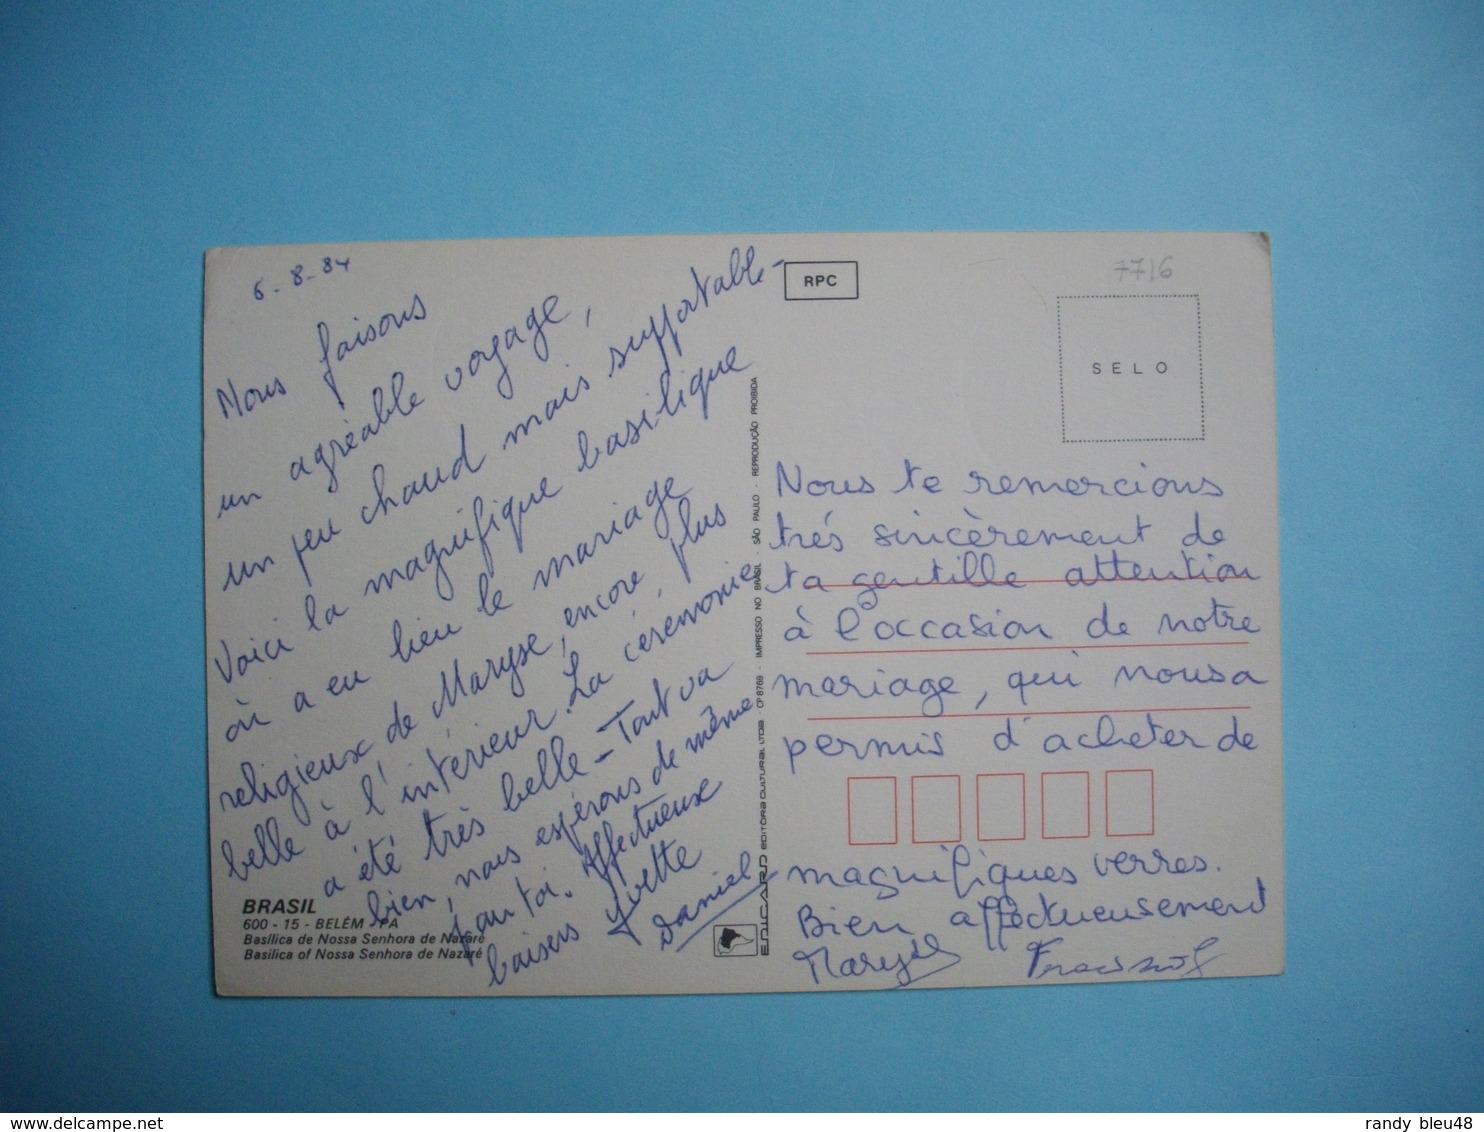 6-8-84
Nous faisons
un agréable voyage,
un peu chaud mais supportable-
Voici la magnifique basilique
où a eu lieu le mariage
religieux de Maryse, encore plus
belle à l'intérieur. La cérémonie
a été très belle - Tout va
bien, nous espérons de même
pour toi. Affectueux
baisers Yvette
Daniel
BRASIL
600 - 15 - BELÉM - PA
Basílica de Nossa Senhora de Nazaré
Basilica of Nossa Senhora de Nazaré
EDICARD EDITÔRA CULTURAL LTDA - CP 8769 - IMPRESSO NO BRASIL - SÃO PAULO - REPRODUÇÃO PROIBIDA
RPC
7716
SELO
Nous te remercions
trés sincèrement de
ta gentille attention
à l'occasion de notre
mariage, qui nous a
permis d'acheter de
magnifiques verres.
Bien affectueusement
Maryse
delcampe.net
randy_bleu48